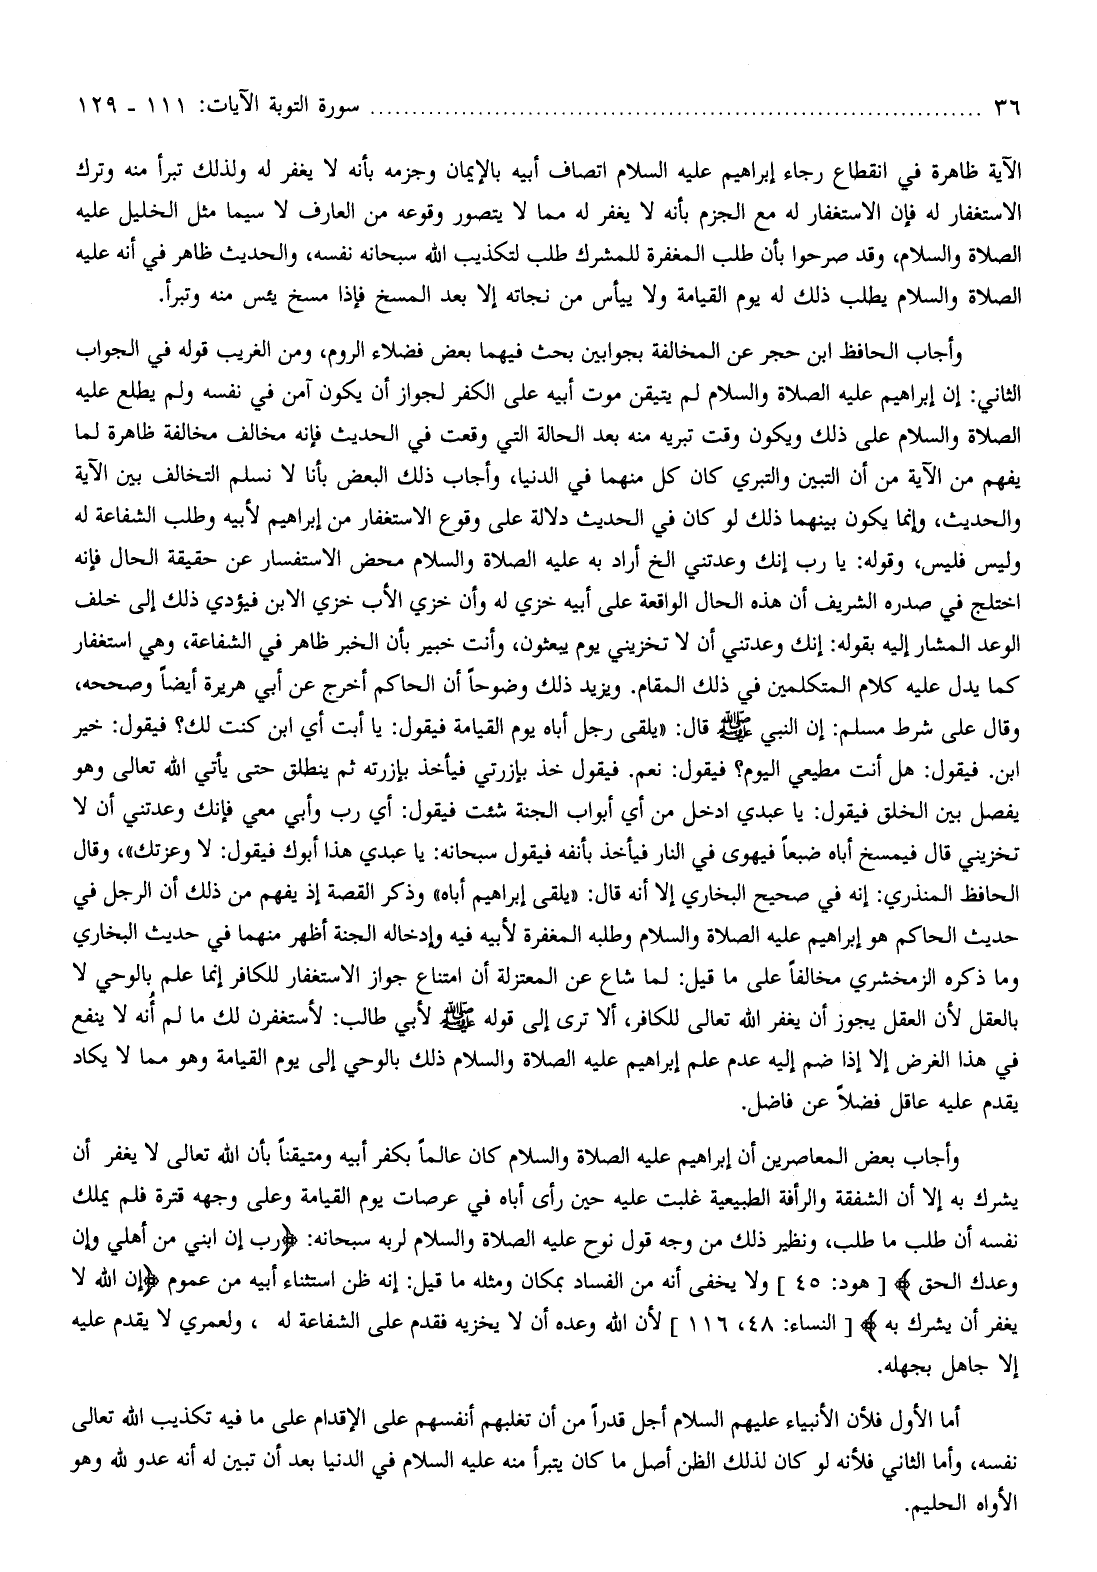 ٣٦ ........................................................................ سورة التوبة الآيات: ١١١ ـ ١٢٩
الآية ظاهرة في انقطاع رجاء إبراهيم عليه السلام اتصاف أبيه بالإيمان وجزمه بأنه لا يغفر له ولذلك تبرأ منه وترك
الاستغفار له فإن الاستغفار له مع الجزم بأنه لا يغفر له مما لا يتصور وقوعه من العارف لا سيما مثل الخليل عليه
الصلاة والسلام، وقد صرحوا بأن طلب المغفرة للمشرك طلب لتكذيب الله سبحانه نفسه، والحديث ظاهر في أنه عليه
الصلاة والسلام يطلب ذلك له يوم القيامة ولا ييأس من نجاته إلا بعد المسخ فإذا مسخ يئس منه وتبرأ.
وأجاب الحافظ ابن حجر عن المخالفة بجوابين بحث فيهما بعض فضلاء الروم، ومن الغريب قوله في الجواب
الثاني: إن إبراهيم عليه الصلاة والسلام لم يتيقن موت أبيه على الكفر لجواز أن يكون آمن في نفسه ولم يطلع عليه
الصلاة والسلام على ذلك ويكون وقت تبريه منه بعد الحالة التي وقعت في الحديث فإنه مخالف مخالفة ظاهرة لما
يفهم من الآية من أن التبين والتبري كان كل منهما في الدنيا، وأجاب ذلك البعض بأنا لا نسلم التخالف بين الآية
والحديث، وإنما يكون بينهما ذلك لو كان في الحديث دلالة على وقوع الاستغفار من إبراهيم لأبيه وطلب الشفاعة له
وليس فليس، وقوله: يا رب إنك وعدتني الخ أراد به عليه الصلاة والسلام محض الاستفسار عن حقيقة الحال فإنه
اختلج في صدره الشريف أن هذه الحال الواقعة على أبيه خزي له وأن خزي الأب خزي الابن فيؤدي ذلك إلى خلف
الوعد المشار إليه بقوله: إنك وعدتني أن لا تخزيني يوم يبعثون، وأنت خبير بأن الخبر ظاهر في الشفاعة، وهي استغفار
كما يدل عليه كلام المتكلمين في ذلك المقام. ويزيد ذلك وضوحاً أن الحاكم أخرج عن أبي هريرة أيضاً وصححه،
وقال على شرط مسلم: إن النبي ﷺ قال: «يلقى رجل أباه يوم القيامة فيقول: يا أبت أي ابن كنت لك؟ فيقول: خير
ابن. فيقول: هل أنت مطيعي اليوم؟ فيقول: نعم. فيقول خذ بإزرتي فيأخذ بإزرته ثم ينطلق حتى يأتي الله تعالى وهو
يفصل بين الخلق فيقول: يا عبدي ادخل من أي أبواب الجنة شئت فيقول: أي رب وأبي معي فإنك وعدتني أن لا
تخزيني قال فيمسخ أباه ضبعاً فيهوى في النار فيأخذ بأنفه فيقول سبحانه: يا عبدي هذا أبوك فيقول: لا وعزتك»، وقال
الحافظ المنذري: إنه في صحيح البخاري إلا أنه قال: «يلقى إبراهيم أباه» وذكر القصة إذ يفهم من ذلك أن الرجل في
حديث الحاكم هو إبراهيم عليه الصلاة والسلام وطلبه المغفرة لأبيه فيه وإدخاله الجنة أظهر منهما في حديث البخاري
وما ذكره الزمخشري مخالفاً على ما قيل: لما شاع عن المعتزلة أن امتناع جواز الاستغفار للكافر إنما علم بالوحي لا
بالعقل لأن العقل يجوز أن يغفر الله تعالى للكافر، ألا ترى إلى قوله ﷺ لأبي طالب: لأستغفرن لك ما لم أُنه لا ينفع
في هذا الغرض إلا إذا ضم إليه عدم علم إبراهيم عليه الصلاة والسلام ذلك بالوحي إلى يوم القيامة وهو مما لا يكاد
يقدم عليه عاقل فضلاً عن فاضل.
وأجاب بعض المعاصرين أن إبراهيم عليه الصلاة والسلام كان عالماً بكفر أبيه ومتيقناً بأن الله تعالى لا يغفر أن
يشرك به إلا أن الشفقة والرأفة الطبيعية غلبت عليه حين رأى أباه في عرصات يوم القيامة وعلى وجهه قترة فلم يملك
نفسه أن طلب ما طلب، ونظير ذلك من وجه قول نوح عليه الصلاة والسلام لربه سبحانه: ﴿رب إن ابني من أهلي وإن
وعدك الحق﴾ [هود: ٤٥] ولا يخفى أنه من الفساد بمكان ومثله ما قيل: إنه ظن استثناء أبيه من عموم ﴿إن الله لا
يغفر أن يشرك به﴾ [النساء: ٤٨، ١١٦] لأن الله وعده أن لا يخزيه فقدم على الشفاعة له ، ولعمري لا يقدم عليه
إلا جاهل بجهله.
أما الأول فلأن الأنبياء عليهم السلام أجل قدراً من أن تغلبهم أنفسهم على الإقدام على ما فيه تكذيب الله تعالى
نفسه، وأما الثاني فلأنه لو كان لذلك الظن أصل ما كان يتبرأ منه عليه السلام في الدنيا بعد أن تبين له أنه عدو لله وهو
الأواه الحليم.